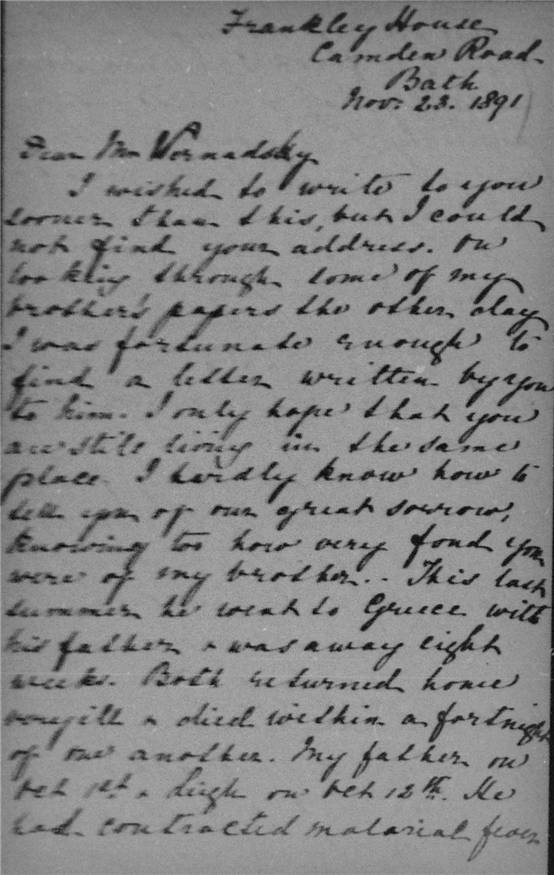 Frankley House
Camden Road
Bath
Nov: 23. 1891
Dear Mr Vernadsky
I wished to write to you
sooner than this, but I could
not find your address. On
looking through some of my
brother's papers the other day
I was fortunate enough to
find a letter written by you
to him. I only hope that you
are still living in the same
place. I hardly know how to
tell you of our great sorrow,
knowing too how very fond you
were of my brother.. This last
summer he went to Greece with
his father & was away eight
weeks. Both returned home
very ill & died within a fortnight
of one another. My father on
Oct 1st & Leigh on Oct 12th. He
had contracted malarial fever